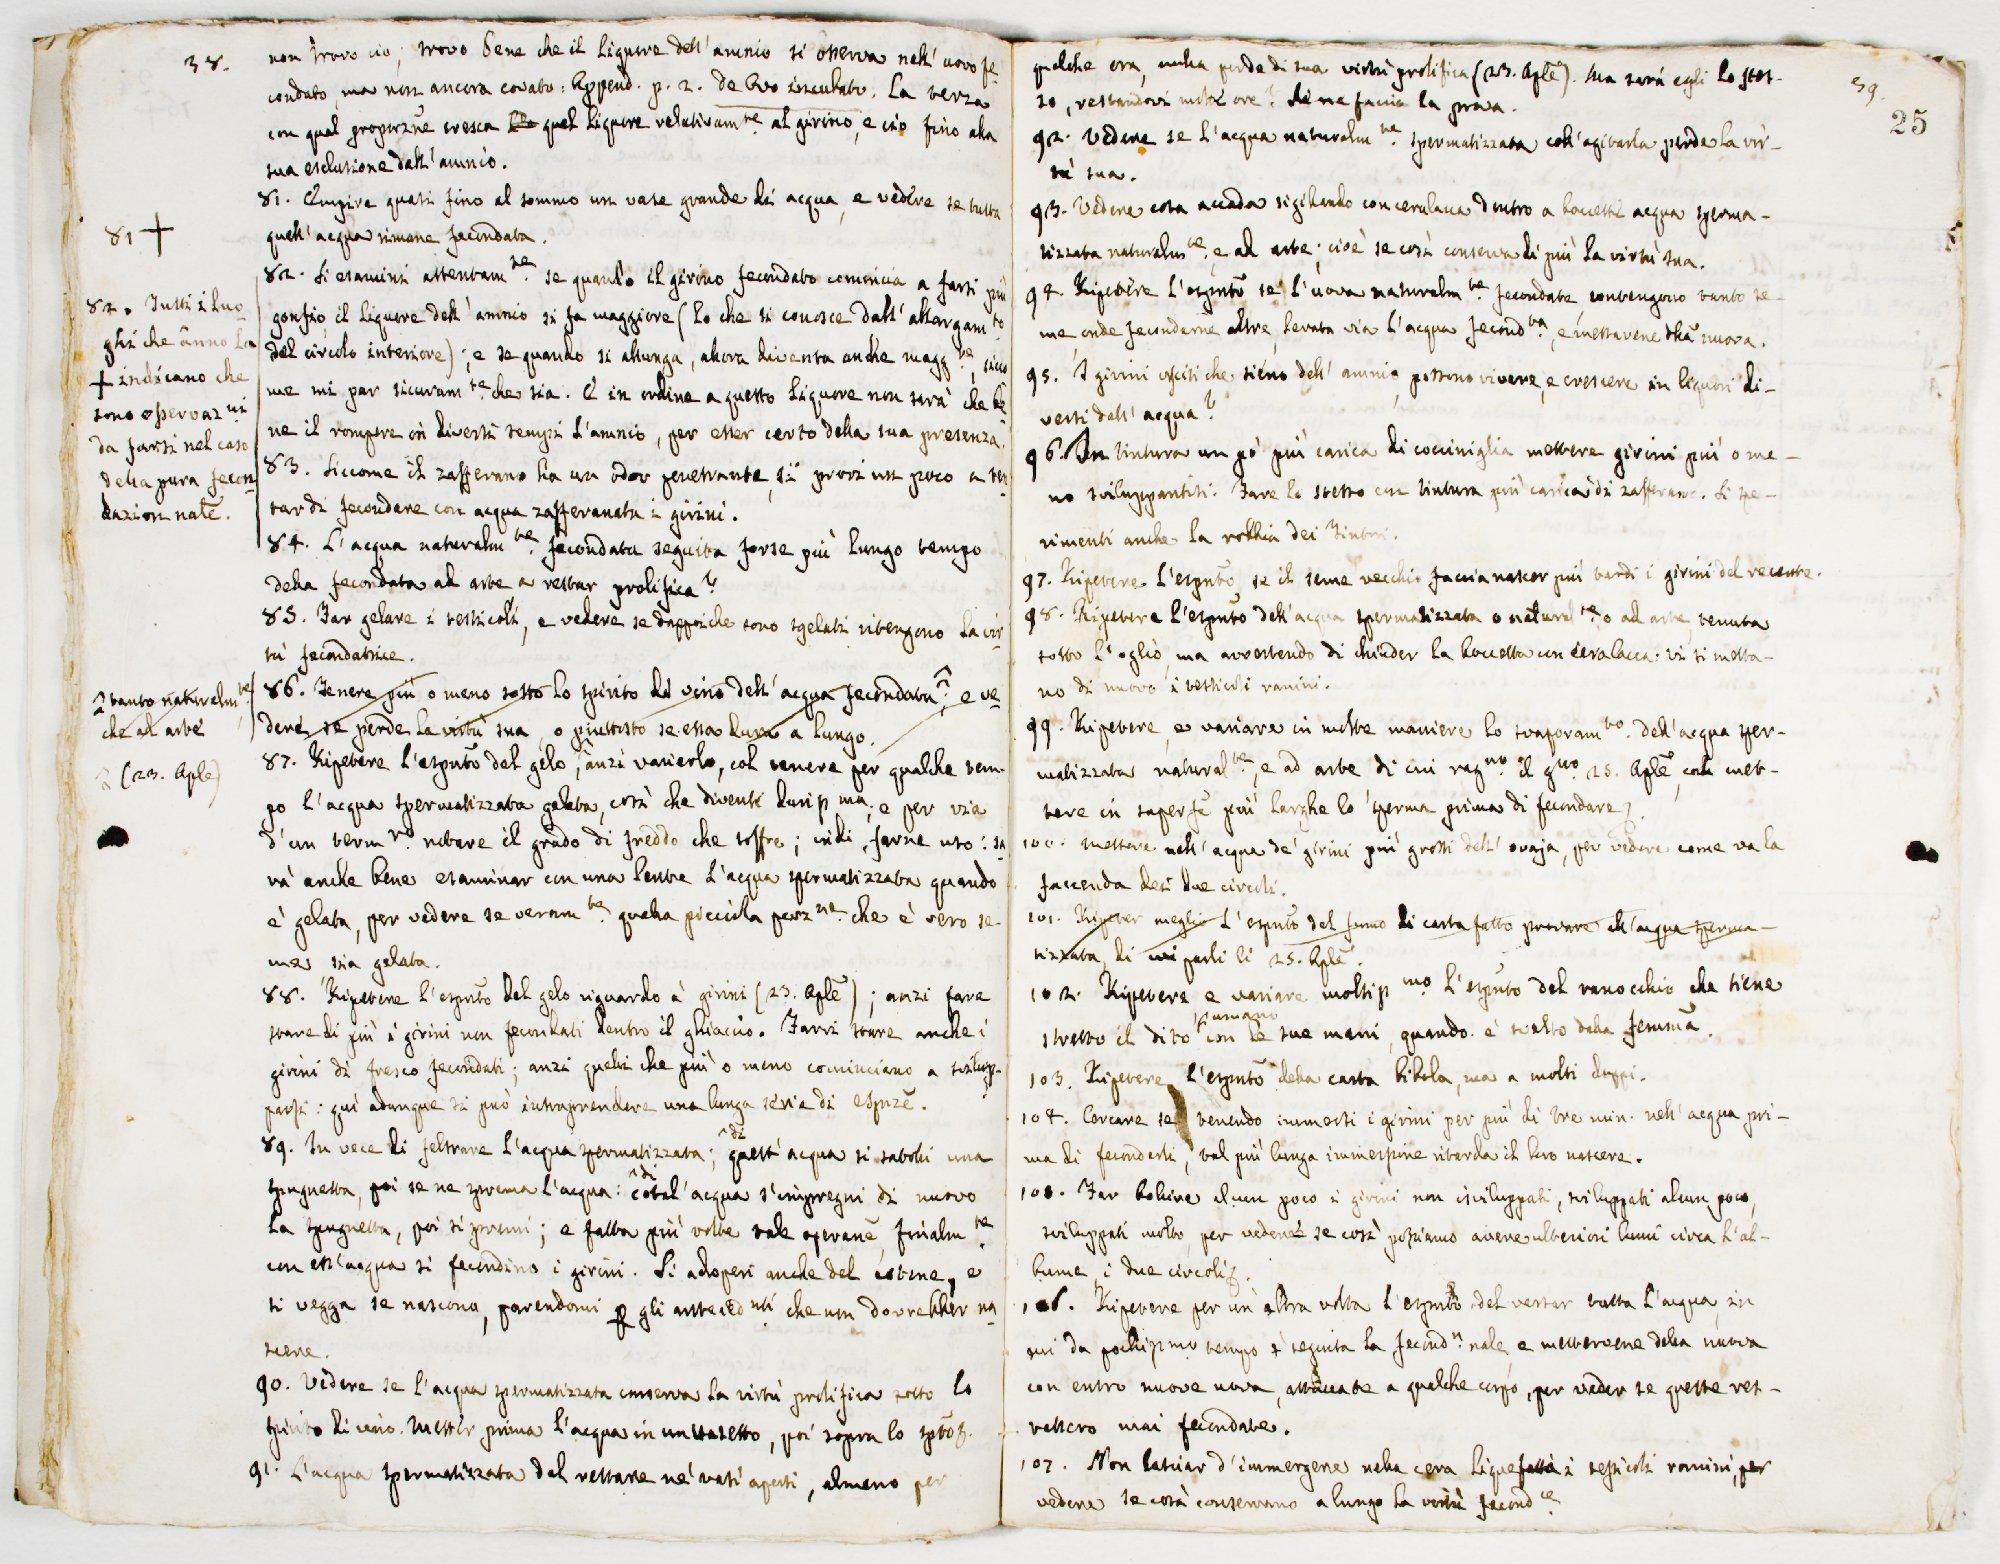 38.
non trovo ciò; trovo bene che il liquore dell'amnio si osserva nell'uovo fe-
condato, ma non ancora covato: Append. p. 2. de Ovo incubato. La terza
con qual proporzne cresca quel liquore relativamte. al girino, e ciò fino alla
sua esclusione dall'amnio.
81. Empire quasi fino al sommo un vase grande di acqua, e vedere se tutta
quell'acqua rimane fecondata.
81 +
82. Si esamini attentamte. se quando il girino fecondato comincia a farsi più
gonfio, il liquore dell'amnio si fa maggiore (lo che si conosce dall'allargamto
del circolo interiore); e se quando si allunga, allora diventa anche maggre, sicco
me mi par sicuramte che sia. E in ordine a questo liquore non sarà che be
ne il rompere in diversi tempi l'amnio, per esser certo della sua presenza.
82. Tutti i luo
ghi che ànno la
+ indicano che
sono osservazni
da farsi nel caso
della pura fecon
dazion natle.
83. Siccome il zafferano ha un odor penetrante, si provi un poco a ten
tar di fecondare con acqua zafferanata i girini.
84. L'acqua naturalmte. fecondata seguita forse più lungo tempo
della fecondata ad arte a restar prolifica?
85. Far gelare i testicoli, e vedere se dappoiche sono sgelati ritengono la vir
tù fecondatrice.
86. Tenere più o meno sotto lo spirito di vino dell'acqua fecondata^, e ve
dere se perde la virtù sua, o piuttosto se essa dura a lungo.
^ tanto naturalmte,
che ad arte
87. Ripetere l'esprto del gelo, anzi variarlo, col tenere per qualche tem-
po l'acqua spermatizzata gelata, così che diventi durissma, e per via
d'un termro. notare il grado di freddo che soffre; indi farne uso: sa
rà anche bene esaminar con una lente l'acqua spermatizzata quando
è gelata, per vedere se veramte. quella picciola porzne. che è vero se-
me, sia gelata.
(23. Aple)
88. Ripetere l'esprto del gelo riguardo a' girini (23. Aple); anzi fare
stare di più i girini non fecondati dentro il ghiaccio. Farvi stare anche i
girini di fresco fecondati; anzi quelli che più o meno cominciano a svilup-
parsi: quì adunque si può intraprendere una lunga serie di esprze.
89. In vece di feltrare l'acqua spermatizzata, ^di quest'acqua si satolli una
spugnetta, poi se ne sprema l'acqua: ^di cotal'acqua s'impregni di nuovo
la spugnetta, poi si spremi; e fatta più volte tale operane, finalmte.
con ess'acqua si fecondino i girini. Si adoperi anche del cotone, e
si vegga se nascono, parendomi p gli antecednti che non dovrebber na
scere.
90. Vedere se l'acqua spermatizzata conserva la virtù prolifica sotto lo
spirito di vino. Metter prima l'acqua in un vasetto, poi sopra lo spto.
91. L'acqua spermatizzata dal restare ne' vasi aperti, almeno per
39.
25
qualche ora, nulla perde di sua virtù prolifica (23. Aple). Ma sarà egli lo stes-
so, restandovi molte ore? Se ne faccia la prova.
92. Vedere se l'acqua naturalmte. spermatizzata coll'agitarla perde la vir-
tù sua.
93. Vedere cosa accada sigillando con ceralacca dentro a boccette acqua sperma-
tizzata naturalmte, e ad arte; cioè se così conserva di più la virtù sua.
94. Ripetere l'esprto se l'uova naturalmte. fecondate contengono tanto se-
me onde fecondarne altre, levata via l'acqua fecondta, e messavene dell'a nuova.
95. I girini usciti che sieno dell'amnio, possono vivere, e crescere in liquori di-
versi dall'acqua?
96. In tintura un pò più carica di cocciniglia mettere girini più o me-
no sviluppantisi. Fare lo stesso con tintura più carica di zafferano. Si spe-
rimenti anche la robbia dei Tintori.
97. Ripetere l'esprto, se il seme vecchio faccia nascer più tardi i girini del recente.
98. Ripetere l'esprto dell'acqua spermatizzata o naturalte, o ad arte, tenuta
sotto l'oglio, ma avvertendo di chiuder la boccetta con ceralacca: vi si metta-
no di nuovo i testicoli ranini.
99. Ripetere, e variare in molte maniere lo svaporamto. dell'acqua sper-
matizzata naturalte., e ad arte di cui ragno il gno. 25. Aple, coll met-
tere in superfe più larghe lo sperma prima di fecondare.
100. Mettere nell'acqua de' girini più grossi dell'ovaja, per vedere come va la
faccenda dei due circoli.
101. Ripeter meglio l'esprto del fumo di carta fatto provare all'acqua sperma-
tizzata, di cui parli li 25. Aple.
102. Ripetere e variare moltissmo l'esprto del ranocchio che tiene
stretto il dito ^umano con le sue mani, quando è sciolto dalla femmina.
103. Ripetere l'esprto della carta bibola, ma a molti doppi.
104. Cercare se tenendo immersi i girini per più di tre min. nell'acqua pri-
ma di fecondarli, tal più lunga immersione ritarda il loro nascere.
105. Far bollire alcun poco i girini non isviluppati, sviluppati alcun poco,
sviluppati molto, per vedere se così possiamo avere ulteriori lumi circa l'al-
bume, i due circoli.
106. Ripetere per un'altra volta l'esprto del versar tutta l'acqua, in
cui da pochissmo tempo è seguita la fecondn. nale, e mettervene della nuova
con entro nuove uova, attaccate a qualche corpo, per veder se queste res-
tassero mai fecondate.
107. Non lasciar d'immergere nella cera liquefatta i testicoli ranini, per
vedere se così conservano a lungo la virtù fecondce.